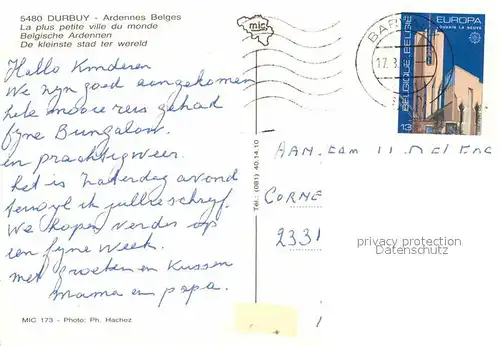 5480 DURBUY - Ardennes Belges
La plus petite ville du monde
Belgische Ardennen
De kleinste stad ter wereld
Hallo Kinderen
We zyn goed aangekomen
hele mooie reis gehad
fyne Bungalow
en prachtig weer.
het is Zaterdag avond
terwyl ik jullie schryf.
We hopen verder op
een fyne week.
met groeten en Kussen
Mama en papa.
MIC 173 - Photo: Ph. Hachez
Tel.: (081) 40.14.10
mic
BAR
17.
EUROPA
BELGIQUE-BELGIË
13
AAN FAM
CORNE
2331
privacy protection
Datenschutz